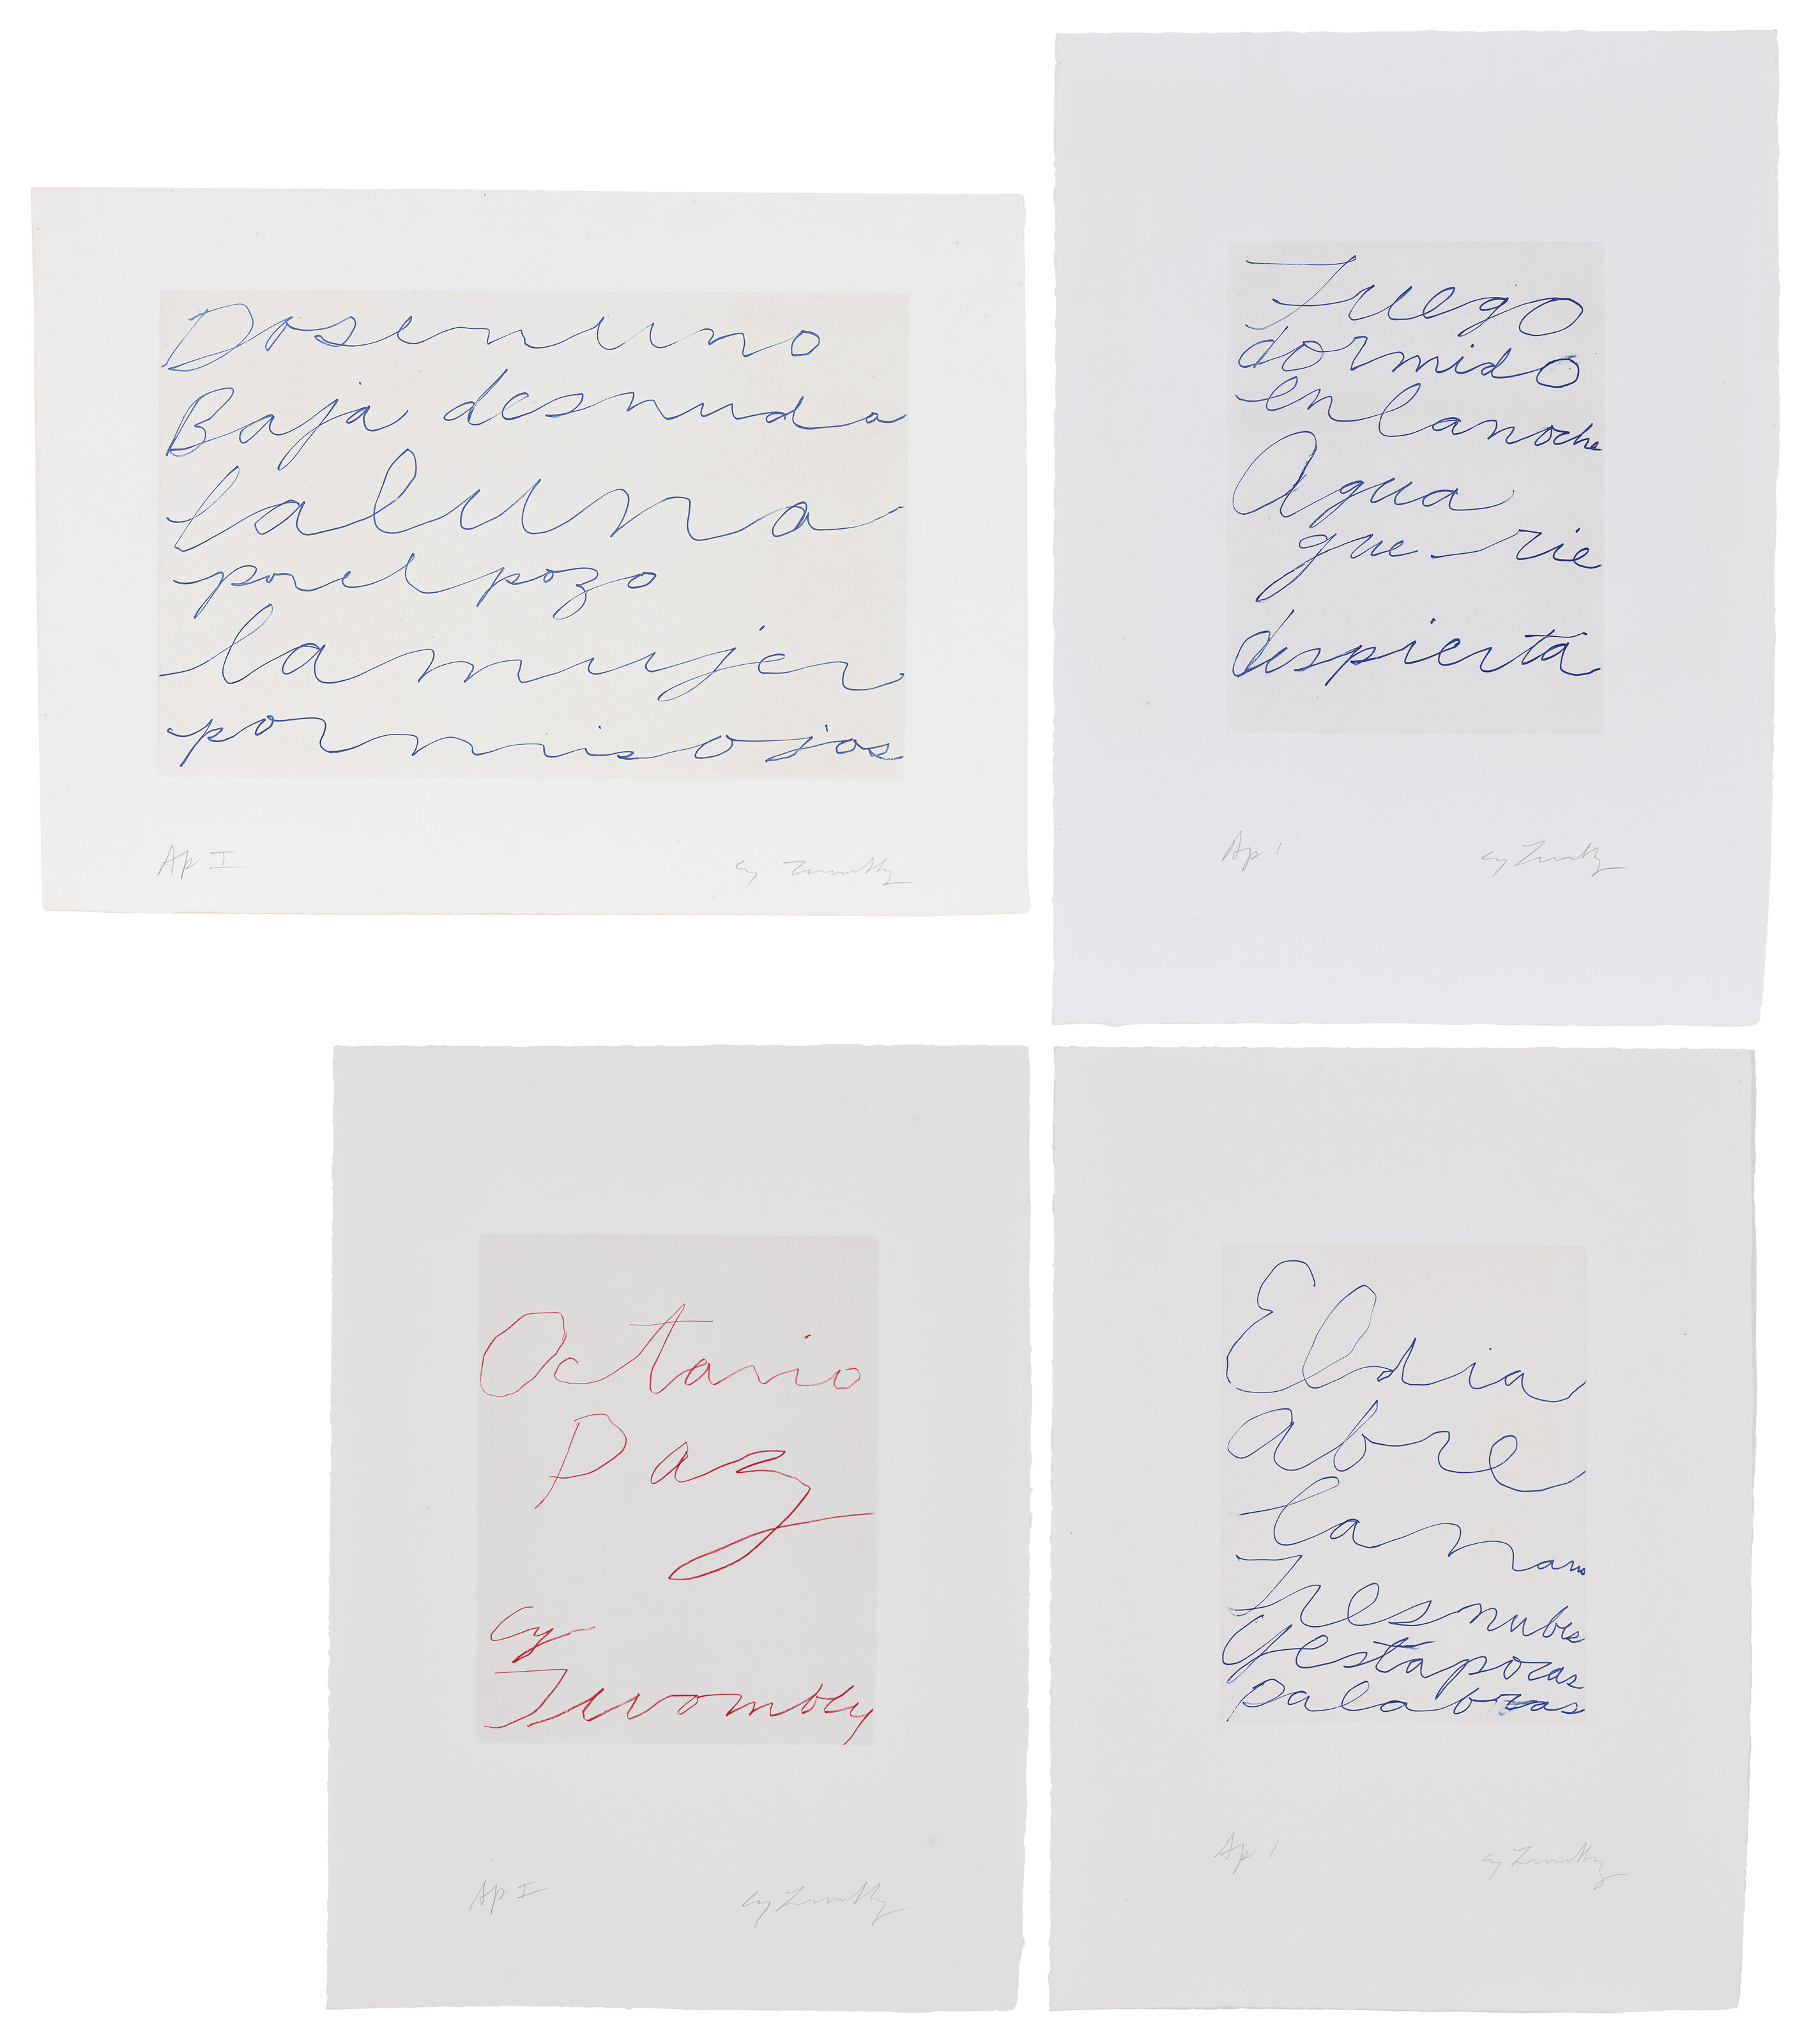 Dos en uno
Baja desnuda
la luna
por el pozo
la mujer
por mis ojos
Ap I
Cy Twombly
Fuego
dormido
en la noche
Agua
que rie
despierta
Ap 1
Cy Twombly
Octavio
Paz
Cy
Twombly
Ap I
Cy Twombly
El dia
abre
la mano
Tres nubes
Y estas pocas
palabras
Ap 1
Cy Twombly